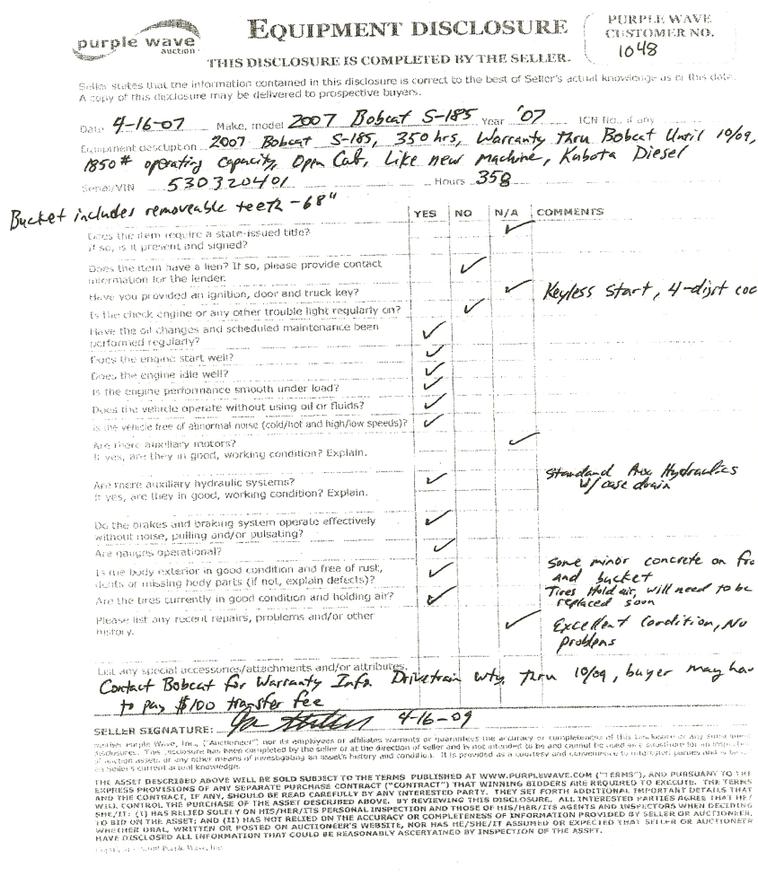 purple wave
auction
EQUIPMENT DISCLOSURE
THIS DISCLOSURE IS COMPLETED BY THE SELLER.
PURPLE WAVE
CUSTOMER NO.
1048
Seller states that the information contained in this disclosure is correct to the best of Seller's actual knowledge as of this date.
A copy of this disclosure may be delivered to prospective buyers.
Date 4-16-07 Make, model 2007 Bobcat S-185 Year '07 ICN No., if any
Equipment description 2007 Bobcat S-185, 350 hrs, Warranty thru Bobcat Until 10/09,
1850# operating capacity, Open Cab, Like new machine, Kubota Diesel
Serial/VIN 530320401 Hours 358
Bucket includes removeable teeth - 68"
YES NO N/A COMMENTS
Does the item require a state-issued title?
If so, is it present and signed?
Does the item have a lien? If so, please provide contact
information for the lender.
Have you provided an ignition, door and truck key? Keyless Start, 4-digit
Is the check engine or any other trouble light regularly on?
Have the oil changes and scheduled maintenance been
performed regularly?
Does the engine start well?
Does the engine idle well?
Is the engine performance smooth under load?
Does the vehicle operate without using oil or fluids?
Is the vehicle free of abnormal noise (cold/hot and high/low speeds)?
Are there auxiliary motors?
If yes, are they in good, working condition? Explain.
Are there auxiliary hydraulic systems? Standard Aux Hydraulics
If yes, are they in good, working condition? Explain. w/ case drain
Do the brakes and braking system operate effectively
without noise, pulling and/or pulsating?
Are gauges operational?
Is the body exterior in good condition and free of rust, Some minor concrete on
dents or missing body parts (if not, explain defects)? and bucket
Are the tires currently in good condition and holding air? Tires Hold air, will need to be
replaced soon
Please list any recent repairs, problems and/or other Excellent condition, No
history. problems
List any special accessories/attachments and/or attributes.
Contact Bobcat for Warranty Info. Drivetrain wty. thru 10/09, buyer may
to pay $100 transfer fee
SELLER SIGNATURE: 4-16-09
Purple Wave, Inc., ("Auctioneer") nor its employees or affiliates warrants or guarantees the accuracy or completeness of this
disclosure. This disclosure has been completed by the seller or at the direction of seller and is not intended to be and cannot be used as a substitute for an
of auction assets, or any other means of investigating an asset's history and condition. It is provided as a courtesy and convenience to interested parties and is
on Seller's current actual knowledge.
THE ASSET DESCRIBED ABOVE WILL BE SOLD SUBJECT TO THE TERMS PUBLISHED AT WWW.PURPLEWAVE.COM ("TERMS"), AND PURSUANT TO THE
EXPRESS PROVISIONS OF ANY SEPARATE PURCHASE CONTRACT ("CONTRACT") THAT WINNING BIDDERS ARE REQUIRED TO EXECUTE. THE TERMS
AND THE CONTRACT, IF ANY, SHOULD BE READ CAREFULLY BY ANY INTERESTED PARTY. THEY SET FORTH ADDITIONAL IMPORTANT DETAILS THAT
WILL CONTROL THE PURCHASE OF THE ASSET DESCRIBED ABOVE. BY REVIEWING THIS DISCLOSURE, ALL INTERESTED PARTIES AGREE THAT HE/
SHE/IT: (I) HAS RELIED SOLELY ON HIS/HER/ITS PERSONAL INSPECTION AND THOSE OF HIS/HER/ITS AGENTS AND INSPECTORS WHEN DECIDING
TO BID ON THE ASSET; AND (II) HAS NOT RELIED ON THE ACCURACY OR COMPLETENESS OF INFORMATION PROVIDED BY SELLER OR AUCTIONEER,
WHETHER ORAL, WRITTEN OR POSTED ON AUCTIONEER'S WEBSITE, NOR HAS HE/SHE/IT ASSUMED OR EXPECTED THAT SELLER OR AUCTIONEER
HAVE DISCLOSED ALL INFORMATION THAT COULD BE REASONABLY ASCERTAINED BY INSPECTION OF THE ASSET.
Purple Wave, Inc.